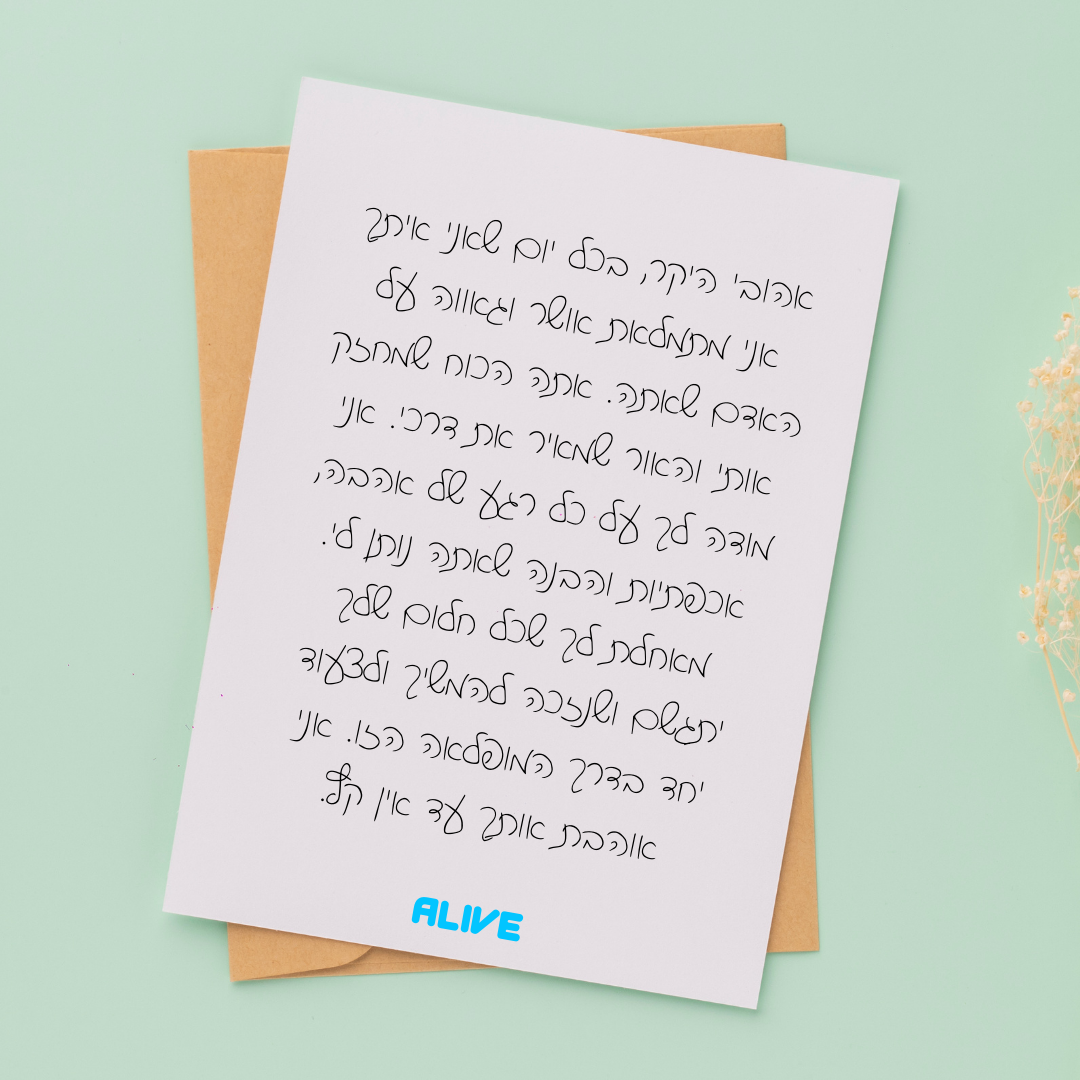 אהובי היקר, בכל יום שאני איתך
אני מתמלאת אושר וגאווה על
האדם שאתה. אתה הכוח שמחזק
אותי והאור שמאיר את דרכי. אני
מודה לך על כל רגע של אהבה,
אכפתיות והבנה שאתה נותן לי.
מאחלת לך שכל חלום שלך
יתגשם ושנזכה להמשיך ולצעוד
יחד בדרך המופלאה הזו. אני
אוהבת אותך עד אין קץ.
ALIVE